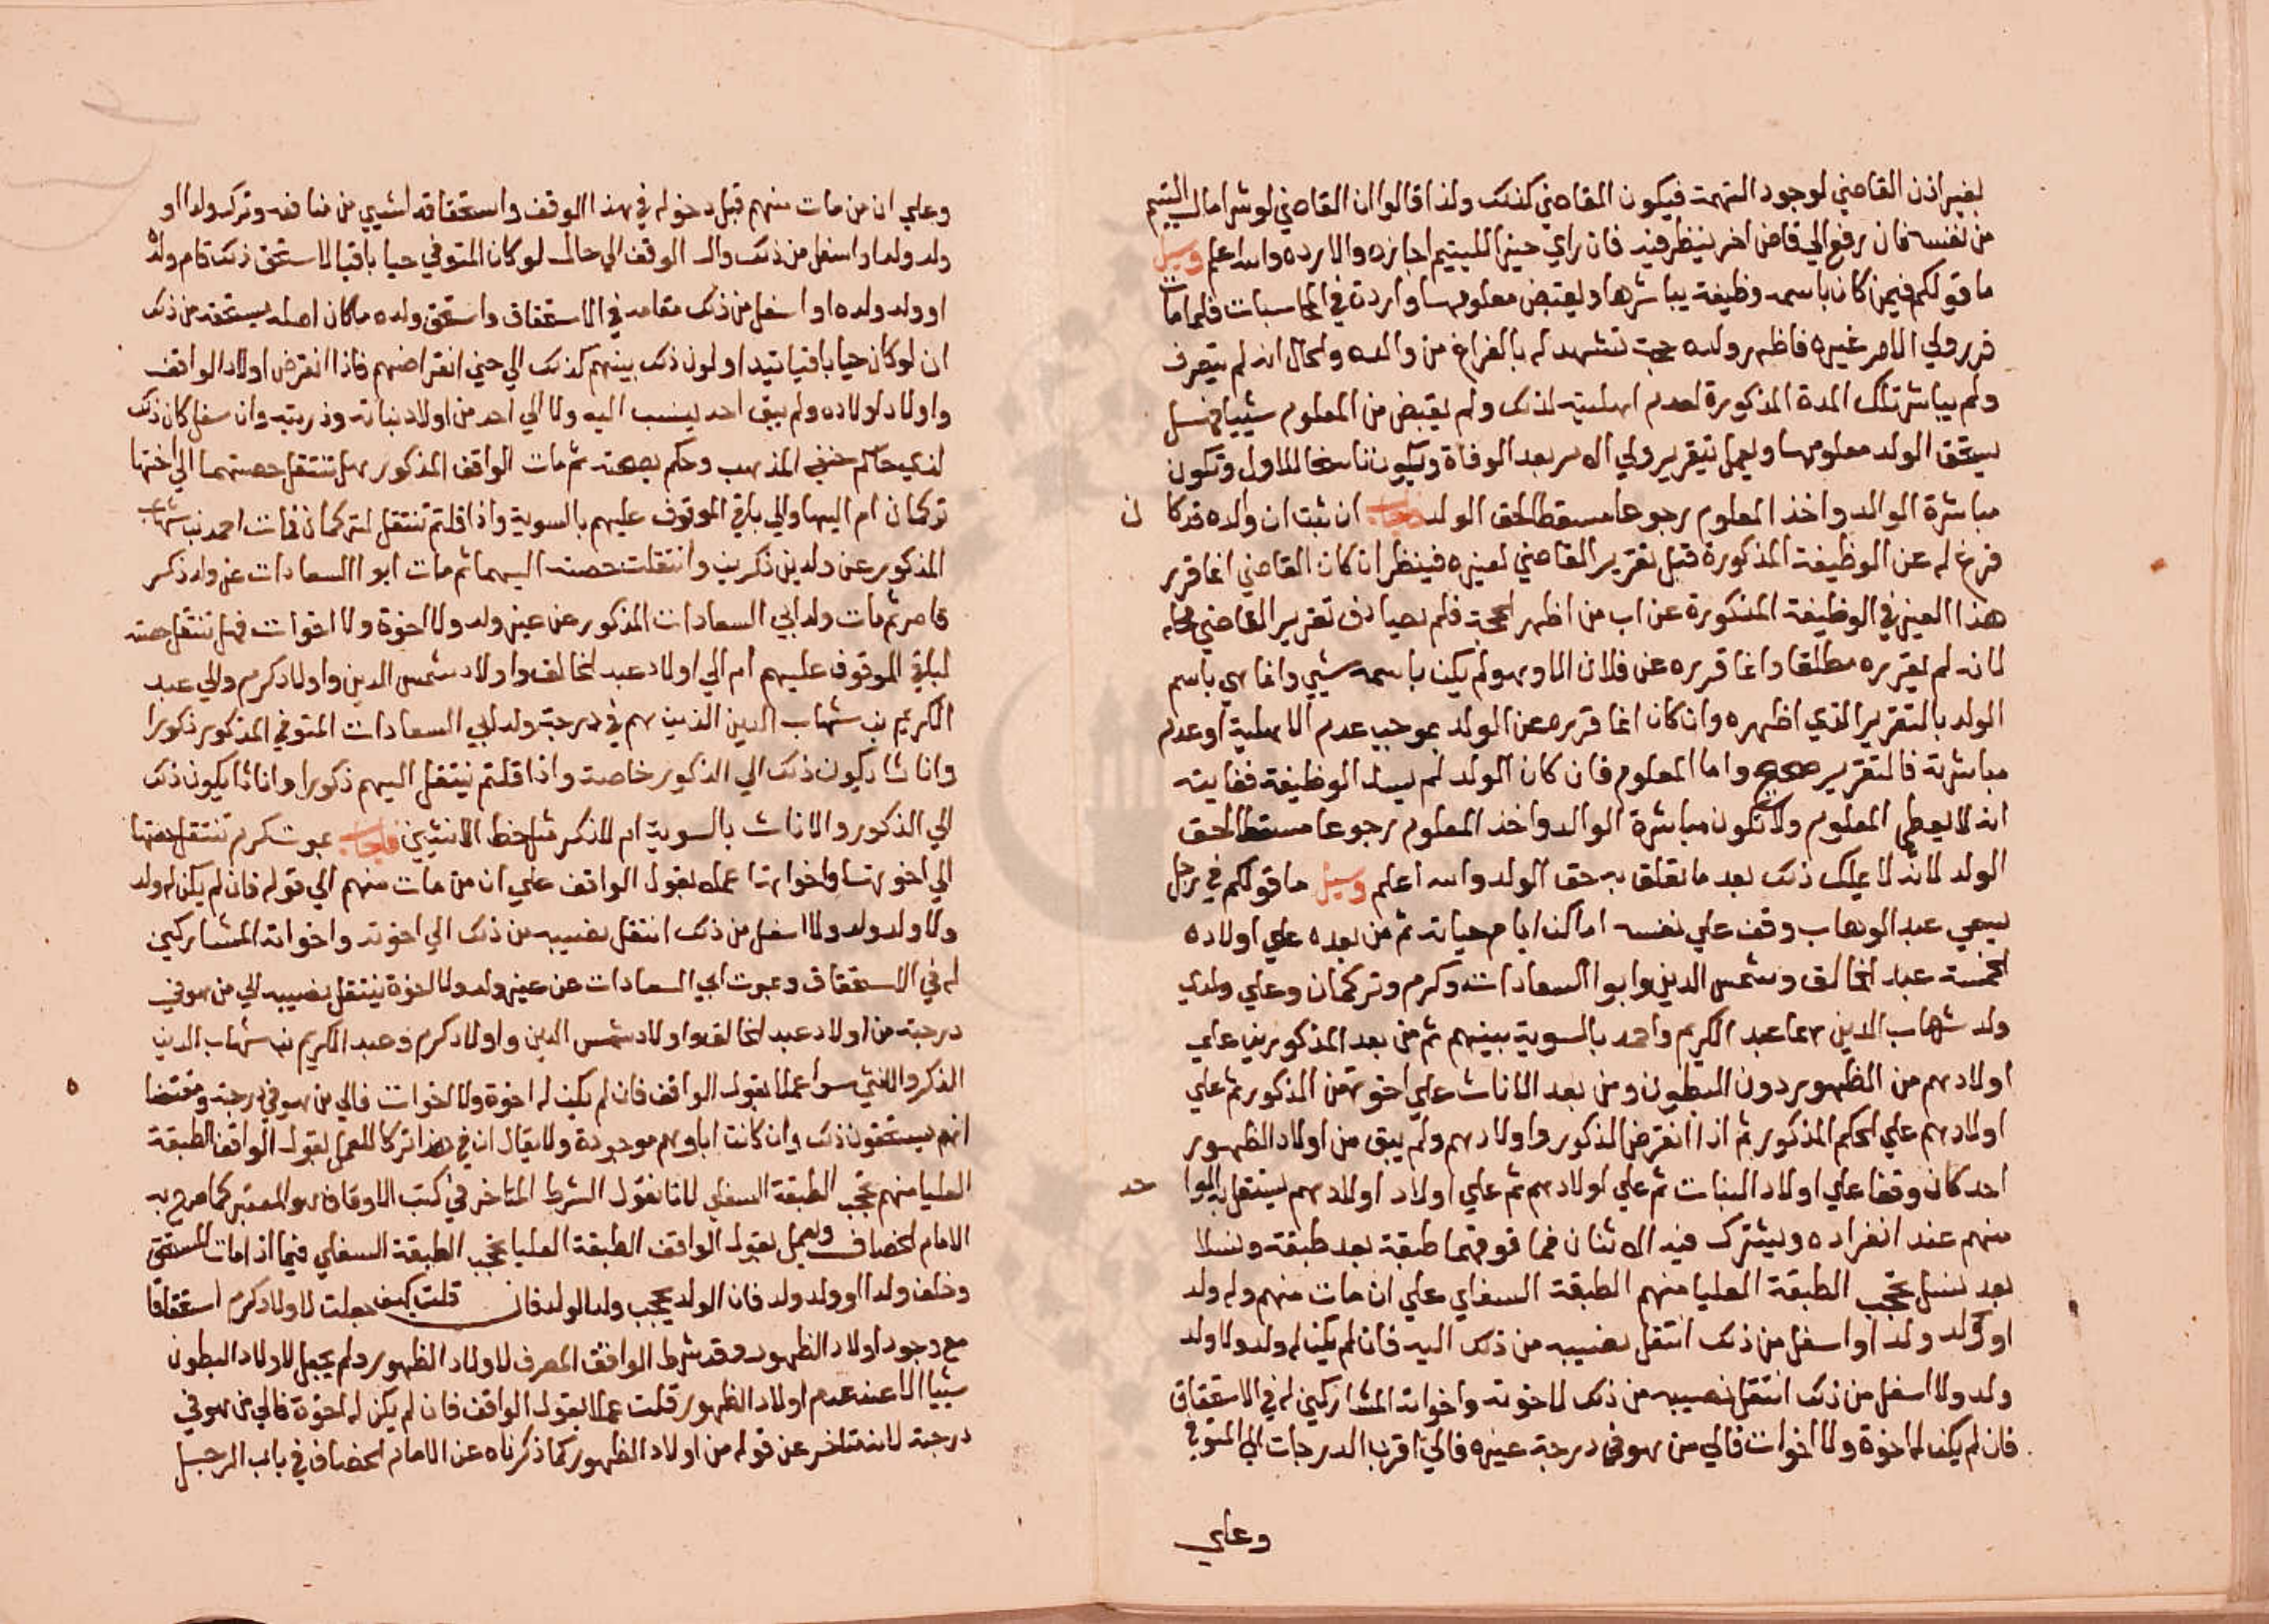 بغير اذن القاضي لوجود التهمة فيكون القاضي كذلك ولذا قالوا ان القاضي لو شرا مال اليتيم
من نفسه فان رفع الي قاض اخر ينظر فيه فان راي خيرا لليتيم اجازه والا رده والله اعلم وسيل
ما قولكم فيمن كان باسمه وظيفة يباشرها ويقبض معلومها واردة في المحاسبات فلما مات
قرر ولي الامر غيره فاظهر ولده حجة تشهد له بالفراغ من والده والحال انه لم يتصرف
ولم يباشر تلك المدة المذكورة لعدم اهليته لذلك ولم يقبض من المعلوم شييا فهل
يستحق الولد معلومها ويعمل بتقرير ولي الامر بعد الوفاة ويكون ناسخا للاول وتكون
مباشرة الوالد واخذ المعلوم رجوعا مسقطا لحق الولد فاجاب ان ثبت ان والده قد كا ن
فرغ له عن الوظيفة المذكورة قبل تقرير القاضي لغيره فينظر ان كان القاضي انما قرر
هذا الغير في الوظيفة المذكورة عن اب من اظهر الحجة فلم يصادف تقرير القاضي محله
لانه لم يقرره مطلقا وانما قرره عن فلان الا وهو لم يكن باسمه شيي وانما هي باسم
الولد بالتقرير الذي اظهره وان كان انما قرره عن الولد بموجب عدم الاهلية او عدم
مباشرته فالتقرير صحيح واما المعلوم فان كان الولد لم يسد الوظيفة فغايته
انه لا يعطي المعلوم ولا تكون مباشرة الوالد واخذ المعلوم رجوعا مسقطا لحق
الولد لانه لا يملك ذلك بعد ما تعلق به حق الولد والله اعلم وسيل ما قولكم في رجل
يسمي عبد الوهاب وقف علي نفسه اماكن ايام حياته ثم من بعده علي اولاده
الخمسة عبد الخالق وشمس الدين وابوا السعادات وكرم وتركمان وعلي ولدي
ولد شهاب الدين هما عبد الكريم واحمد بالسوية بينهم ثم من بعد المذكورين علي
اولادهم من الظهور دون البطون ومن بعد الاناث علي اخوتهن الذكور ثم علي
اولادهم علي الحكم المذكور ثم اذا انقرض الذكور واولادهم ولم يبق من اولاد الظهور
احد كان وقفا علي اولاد البنات ثم علي اولادهم ثم علي اولاد اولادهم يستقل به الوا حد
منهم عند انفراده ويشترك فيه الاثنان فما فوقهما طبقة بعد طبقة ونسلا
بعد نسل تحجب الطبقة العليا منهم الطبقة السفلي علي ان مات منهم وله ولد
او ولد ولد او اسفل من ذلك انتقل نصيبه من ذلك اليه فان لم يكن له ولد ولا ولد
ولد ولا اسفل من ذلك انتقل نصيبه من ذلك لاخوته واخواته المشاركين له في الاستحقاق
فان لم يكن له اخوة ولا اخوات فالي من هو في درجة غيره فالي اقرب الدرجات الي المتوفي
وعلي
وعلي ان من مات منهم قبل دخوله في هذا الوقف واستحقاقه لشيي من منافعه وترك ولدا او
ولد ولد او اسفل من ذلك وال الوقف الي حال لو كان المتوفي حيا باقيا لاستحق ذلك قام ولده
او ولد ولده او اسفل من ذلك مقامه في الاستحقاق واستحق ولده ما كان اصله يستحقه من ذلك
ان لو كان حيا باقيا يتداولون ذلك بينهم كذلك الي حين انقراضهم فاذا انقرض اولاد الواقف
واولاد اولاده ولم يبق احد ينسب اليه ولا الي احد من اولاد بناته وذريته وان سفل كان ذلك
لدي حاكم حنفي المذهب وحكم بصحته ثم مات الواقف المذكور هل تنتقل حصتهما الي اختها
تركمان ام اليها والي باقي الموقوف عليهم بالسوية واذا قلتم تنتقل لتركمان فمات احمد بن شهاب
المذكور عن ولدين ذكرين وانتقلت حصته اليهما ثم مات ابوا السعادات عن ولد ذكر
قاصر ثم مات ولد ابي السعادات المذكور عن غير ولد ولا اخوة ولا اخوات فهل تنتقل حصته
لباقي الموقوف عليهم ام الي اولاد عبد الخالق واولاد شمس الدين واولاد كرم والي عبد
الكريم بن شهاب الدين الذين هم في درجة ولد ابي السعادات المتوفي المذكور ذكورا
واناثا ويكون ذلك الي الذكور خاصة واذا قلتم ينتقل اليهم ذكورا واناثا يكون ذلك
الي الذكور والاناث بالسوية ام للذكر مثل حظ الانثيين فاجاب بموت كرم تنتقل حصتها
الي اخوتها واخواتها عملا بقول الواقف علي ان من مات منهم الي قوله فان لم يكن له ولد
ولا ولد ولد ولا اسفل من ذلك انتقل نصيبه من ذلك الي اخوته واخواته المشاركين
له في الاستحقاق وبموت ابي السعادات عن غير ولد ولا اخوة ينتقل نصيبه الي من هو في
درجته من اولاد عبد الخالق واولاد شمس الدين واولاد كرم وعبد الكريم بن شهاب الدين
الذكر والانثي سوا عملا بقول الواقف فان لم يكن له اخوة ولا اخوات فالي من هو في درجته ومقتضا ه
انهم يستحقون ذلك وان كانت اباوهم موجودة ولا يقال ان في هذا تركا للعمل بقول الواقف الطبقة
العليا منهم تحجب الطبقة السفلي لانا نقول الشرط المتاخر في كتب الاوقاف هو المعتبر كما صرح به
الامام الخصاف ويعمل بقول الواقف الطبقة العليا تحجب الطبقة السفلي فيما اذا مات المستحق
وخلف ولدا او ولد ولد فان الولد يحجب ولد الولد فان قلت كيف جعلت لاولاد كرم استحقاقا
مع وجود اولاد الظهور وقد شرط الواقف الصرف لاولاد الظهور ولم يجعل لاولاد البطون
شييا الا عند عدم اولاد الظهور قلت عملا بقول الواقف فان لم يكن له اخوة فالي من هو في
درجته لانه متاخر عن قوله من اولاد الظهور كما ذكرناه عن الامام الخصاف في باب الرجل